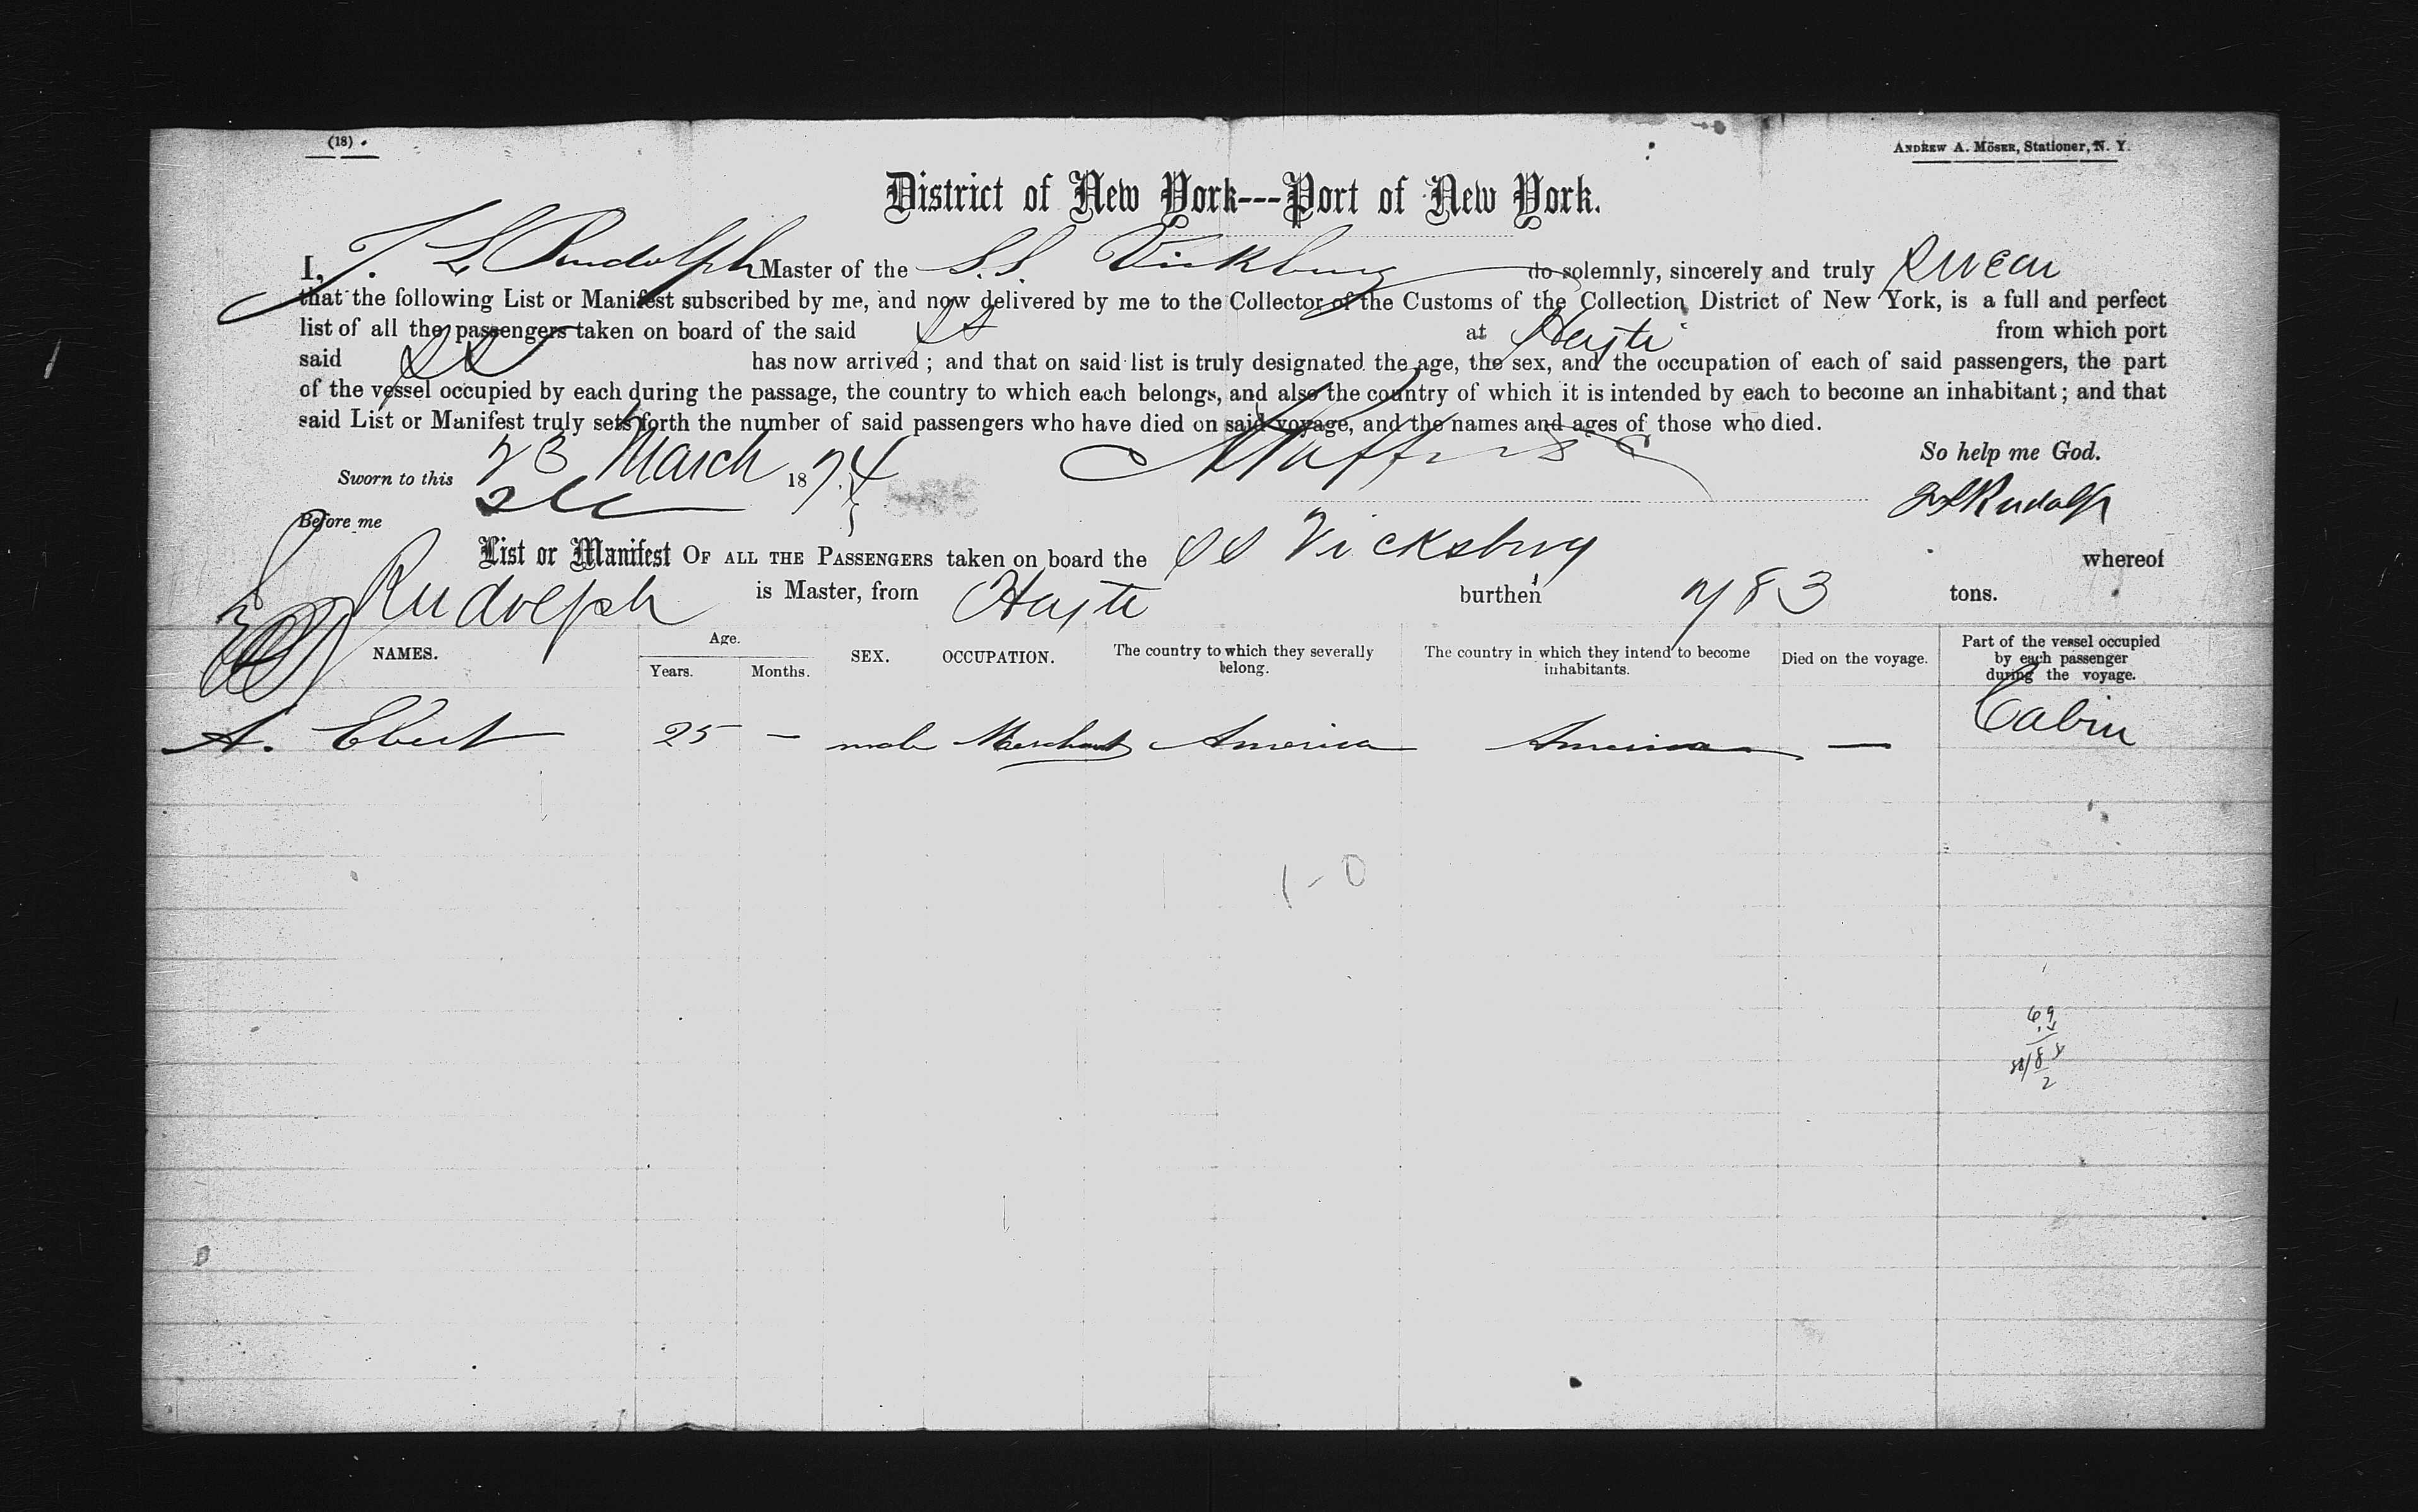 (18)
ANDREW A. MÖSER, Stationer, N. Y.
District of New York---Port of New York.
I, J. L. Rudolph Master of the S.S. Vickburg do solemnly, sincerely and truly swear
that the following List or Manifest subscribed by me, and now delivered by me to the Collector of the Customs of the Collection District of New York, is a full and perfect
list of all the passengers taken on board of the said SS at Hayti from which port
said SS has now arrived; and that on said list is truly designated the age, the sex, and the occupation of each of said passengers, the part
of the vessel occupied by each during the passage, the country to which each belongs, and also the country of which it is intended by each to become an inhabitant; and that
said List or Manifest truly sets forth the number of said passengers who have died on said voyage, and the names and ages of those who died.
So help me God.
Sworn to this 23 March 1874
Rudolph
Before me
List or Manifest OF ALL THE PASSENGERS taken on board the SS Vicksburg whereof
Rudolph is Master, from Hayti burthen 783 tons.
NAMES. Age. Years. Months. SEX. OCCUPATION. The country to which they severally belong. The country in which they intend to become inhabitants. Died on the voyage. Part of the vessel occupied by each passenger during the voyage.
A. Ebert 25 - male Merchant America America — Cabin
1-0